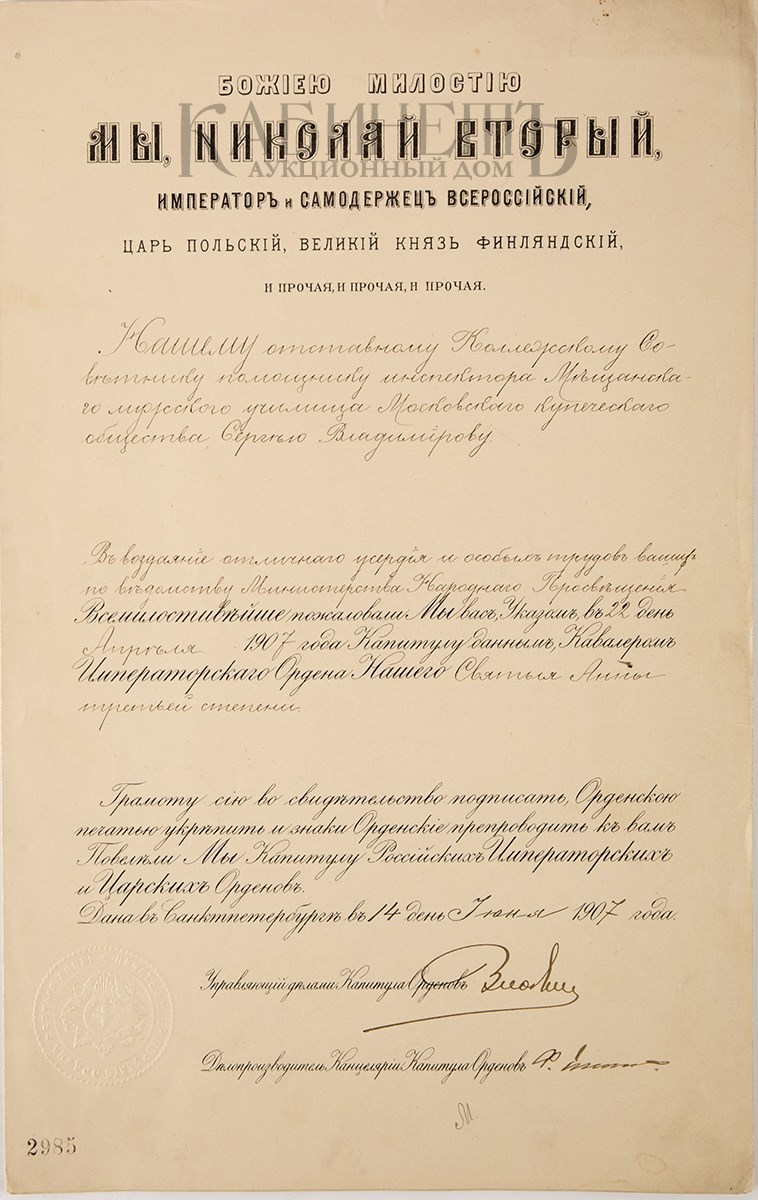 БОЖІЕЮ МИЛОСТІЮ
КАБИНЕТЪ
МЫ, НИКОЛАЙ ВТОРЫЙ,
АУКЦИОННЫЙ ДОМ
ИМПЕРАТОРЪ и САМОДЕРЖЕЦЪ ВСЕРОССІЙСКІЙ,
ЦАРЬ ПОЛЬСКІЙ, ВЕЛИКІЙ КНЯЗЬ ФИНЛЯНДСКІЙ,
И ПРОЧАЯ, И ПРОЧАЯ, И ПРОЧАЯ.
Нашему отставному Коллежскому Со-
вѣтнику помощнику инспектора Мѣщанска-
го мужского училища Московскаго купеческаго
общества Сергѣю Владимірову
Въ воздаяніе отличнаго усердія и особыхъ трудовъ вашихъ
по вѣдомству Министерства Народнаго Просвѣщенія
Всемилостивѣйше пожаловали Мы васъ, Указомъ, въ 22 день
Апрѣля 1907 года Капитулу даннымъ, Кавалеромъ
Императорскаго Ордена Нашего Святыя Анны
третьей степени.
Грамоту сію во свидѣтельство подписать, Орденскою
печатью укрѣпить и знаки Орденскіе препроводить къ вамъ
Повелѣли Мы Капитулу Россійскихъ Императорскихъ
и Царскихъ Орденовъ.
Дана въ Санктпетербургѣ въ 14 день Іюня 1907 года.
Управляющій дѣлами Капитула Орденовъ
Дѣлопроизводитель Канцеляріи Капитула Орденовъ
М
2985